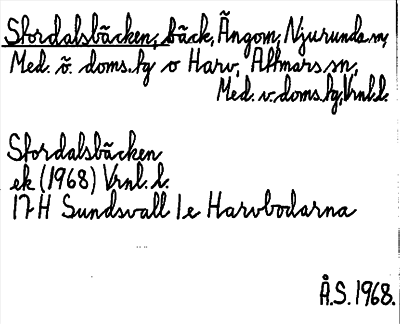 Stordalsbäcken, bäck, Ängom, Njurunda sn,
Med. ö. doms.hg o Harv, Attmars sn,
Med. v. doms.hg, Vrnl.l.
Stordalsbäcken
ek (1968) Vrnl. l.
17H Sundsvall 1e Harvbodarna
Å.S. 1968.